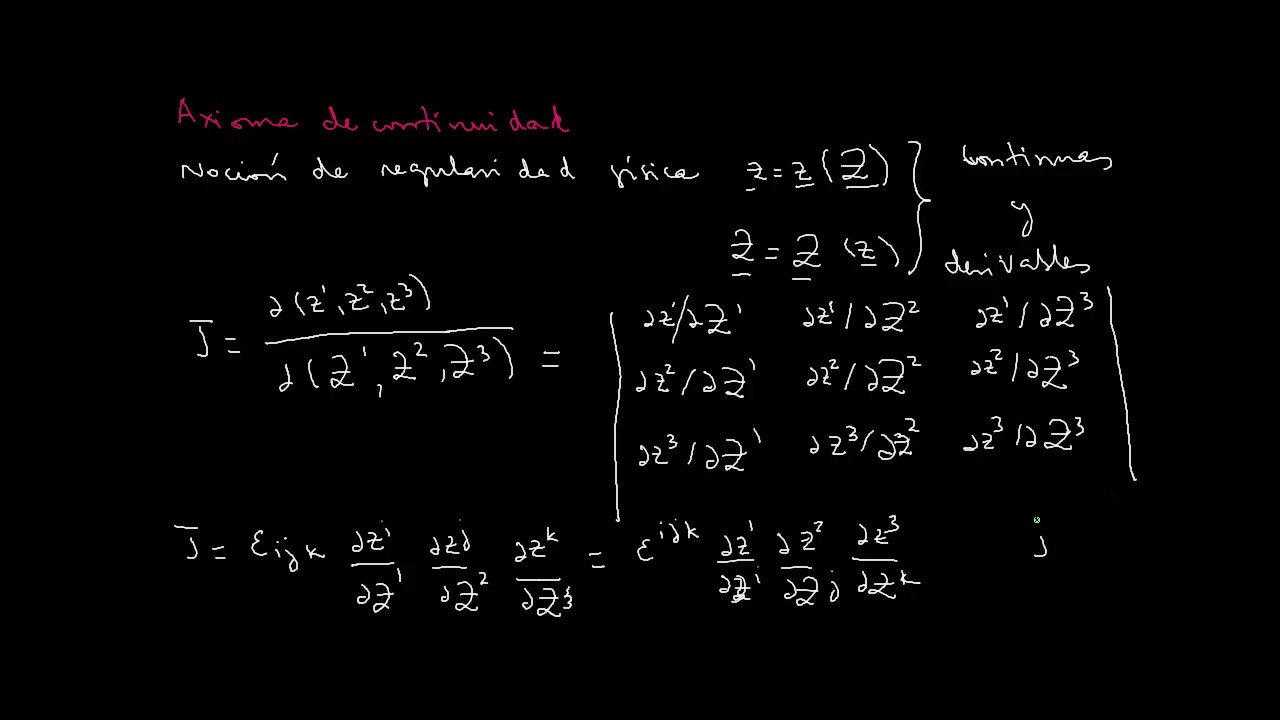 Axioma de continuidad
Noción de regularidad física z = z (Z) } continuas
y
Z = Z (z) derivables
J = ∂(z¹, z², z³) / ∂(Z¹, Z², Z³) = | ∂z¹/∂Z¹ ∂z¹/∂Z² ∂z¹/∂Z³ |
∂z²/∂Z¹ ∂z²/∂Z² ∂z²/∂Z³
∂z³/∂Z¹ ∂z³/∂Z² ∂z³/∂Z³
J = ε_ijk ∂zⁱ/∂Z¹ ∂zʲ/∂Z² ∂zᵏ/∂Z³ = ε^ijk ∂z¹/∂Zⁱ ∂z²/∂Zʲ ∂z³/∂Zᵏ J